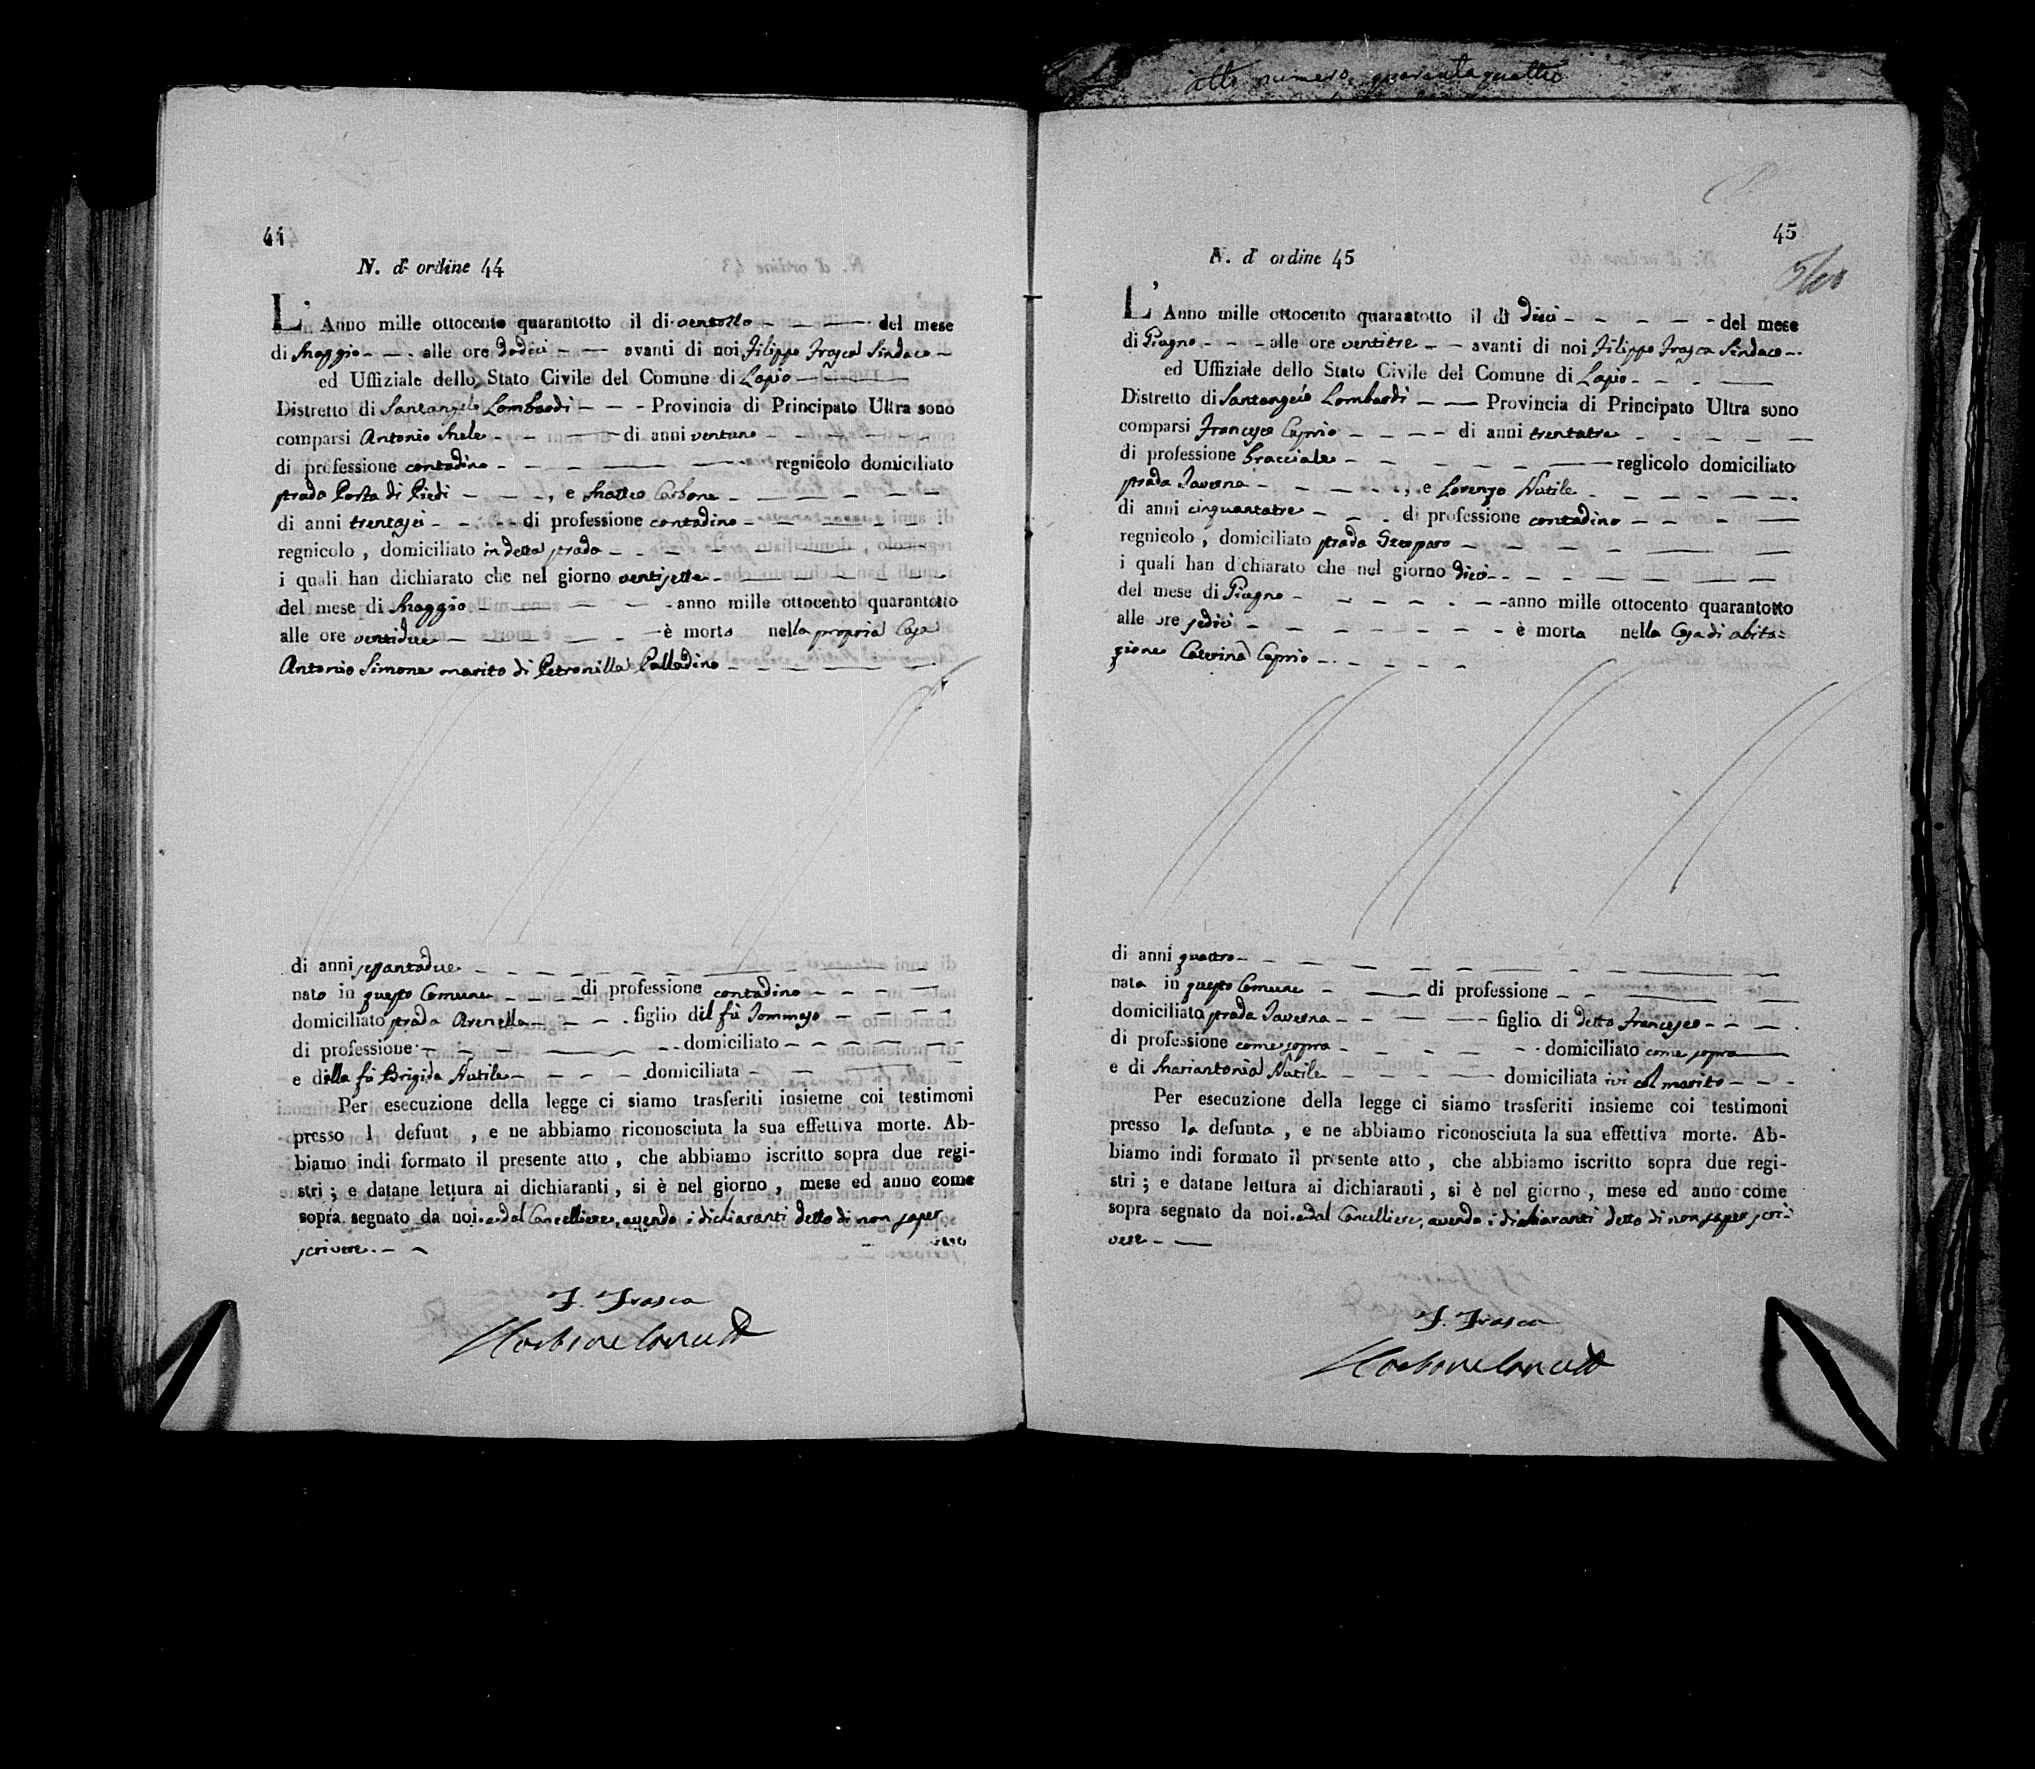 44
N. d' ordine 44
L' Anno mille ottocento quarantotto il di ventotto del mese
di Maggio alle ore dodici avanti di noi Filippo Frasca Sindaco
ed Uffiziale dello Stato Civile del Comune di Lapio
Distretto di Santangelo Lombardi Provincia di Principato Ultra sono
comparsi Antonio Mele di anni ventuno
di professione contadino regnicolo domiciliato
strada Porta di Piedi, e Matteo Carbone
di anni trentasei di professione contadino
regnicolo, domiciliato in detta strada
i quali han dichiarato che nel giorno ventisette
del mese di Maggio anno mille ottocento quarantotto
alle ore ventidue è morto nella propria Casa
Antonio Simone marito di Petronilla Palladino
di anni sessantadue
nato in questo Comune di professione contadino
domiciliato strada Arenella figlio del fù Tommaso
di professione domiciliato
e della fù Brigida Nutile domiciliata
Per esecuzione della legge ci siamo trasferiti insieme coi testimoni
presso l defunt , e ne abbiamo riconosciuta la sua effettiva morte. Ab-
biamo indi formato il presente atto, che abbiamo iscritto sopra due regi-
stri; e datane lettura ai dichiaranti, si è nel giorno, mese ed anno come
sopra segnato da noi, e dal Cancelliere, avendo i dichiaranti detto di non saper
scrivere.
F. Frasca
Carbone
atto numero quarantaquattro
45
N. d' ordine 45
L' Anno mille ottocento quarantotto il di dieci del mese
di Giugno alle ore ventitre avanti di noi Filippo Frasca Sindaco
ed Uffiziale dello Stato Civile del Comune di Lapio
Distretto di Santangelo Lombardi Provincia di Principato Ultra sono
comparsi Francesco Caprio di anni trentatre
di professione bracciale reglicolo domiciliato
strada Taverna, e Lorenzo Nutile
di anni cinquantatre di professione contadino
regnicolo, domiciliato strada
i quali han dichiarato che nel giorno dieci
del mese di Giugno anno mille ottocento quarantotto
alle ore sedici è morta nella Casa di abita=
zione Caterina Caprio
di anni quattro
nata in questo Comune di professione
domiciliata strada Taverna figlia di detto Francesco
di professione come sopra domiciliato come sopra
e di Mariantonia Nutile domiciliata ivi col marito
Per esecuzione della legge ci siamo trasferiti insieme coi testimoni
presso la defunta, e ne abbiamo riconosciuta la sua effettiva morte. Ab-
biamo indi formato il presente atto, che abbiamo iscritto sopra due regi-
stri; e datane lettura ai dichiaranti, si è nel giorno, mese ed anno come
sopra segnato da noi, e dal Cancelliere, avendo i dichiaranti detto di non saper scri-
vere
F. Frasca
Carbone